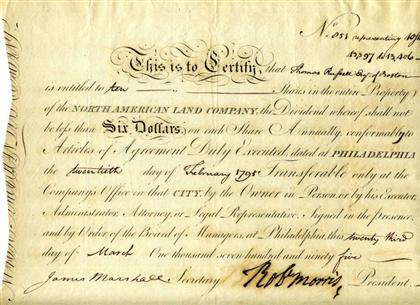 No. 1051 representing
13,397 to 13,406
This is to Certify, that Thomas Russell Esqr. of Boston
is entitled to ten Shares in the entire Property
of the NORTH AMERICAN LAND COMPANY, the Dividend whereof shall not
be less than Six Dollars, on each Share Annually, conformably to
Articles of Agreement Duly Executed, dated at PHILADELPHIA
the twentieth day of February 1795 Transferable only at the
Company's Office in that CITY, by the Owner in Person, or by his Executor,
Administrator, Attorney, or Legal Representative. Signed in the presence,
and by Order of the Board of Managers, at Philadelphia, this twenty third
day of March One thousand seven hundred and ninety five
James Marshall Secretary Robt Morris, President